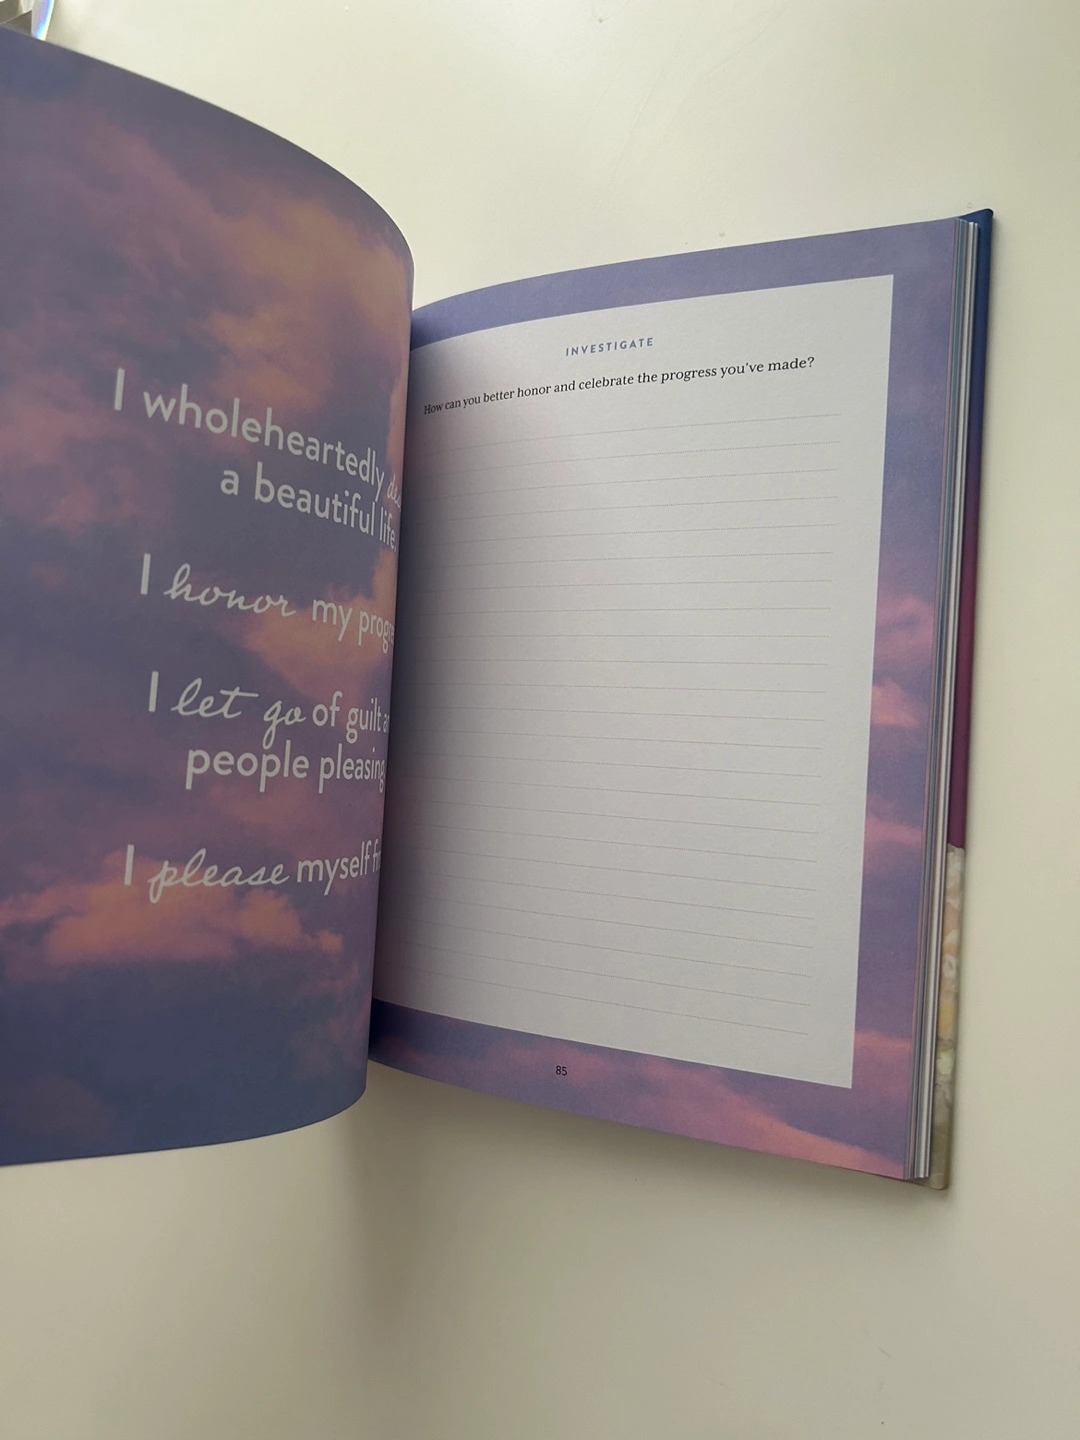 I wholeheartedly
a beautiful life.
I honor my
I let go of guilt
people pleasing
I please myself
INVESTIGATE
How can you better honor and celebrate the progress you've made?
85